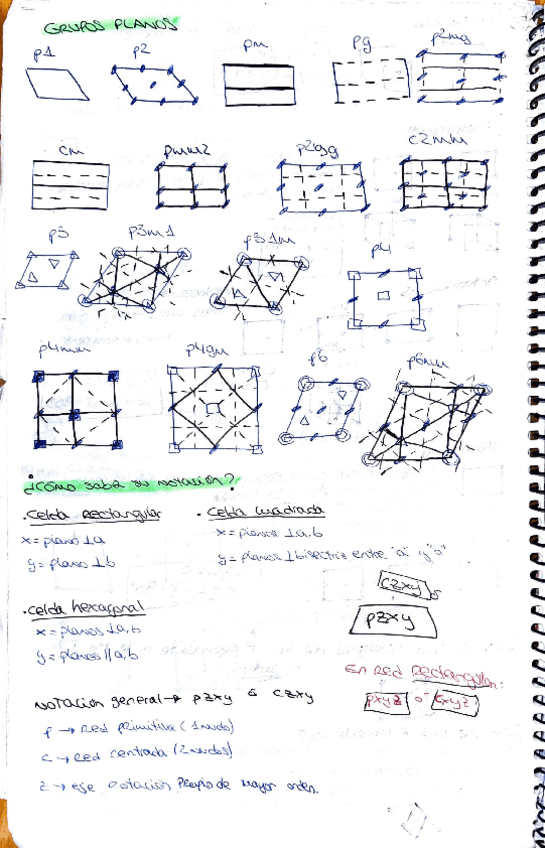 GRUPOS PLANOS
p1 p2 pm pg p2mg
cm pmm2 p2gg c2mm
p3 p3m1 p31m p4
p4mm p4gm p6 p6mm
¿Cómo saber su notación?
· Celda Rectangular · Celda cuadrada
x = plano ⊥ a x = planos ⊥ a, b
y = plano ⊥ b y = planos ⊥ bisectriz entre "a" y "b"
czxy
· Celda hexagonal pzxy
x = planos ⊥ a, b
y = planos // a, b
En Red Rectangular:
Notación general → pzxy ó czxy pxyz o cxyz
p → Red primitiva (1 nudo)
c → Red centrada (2 nudos)
z → eje rotación propio de mayor orden.